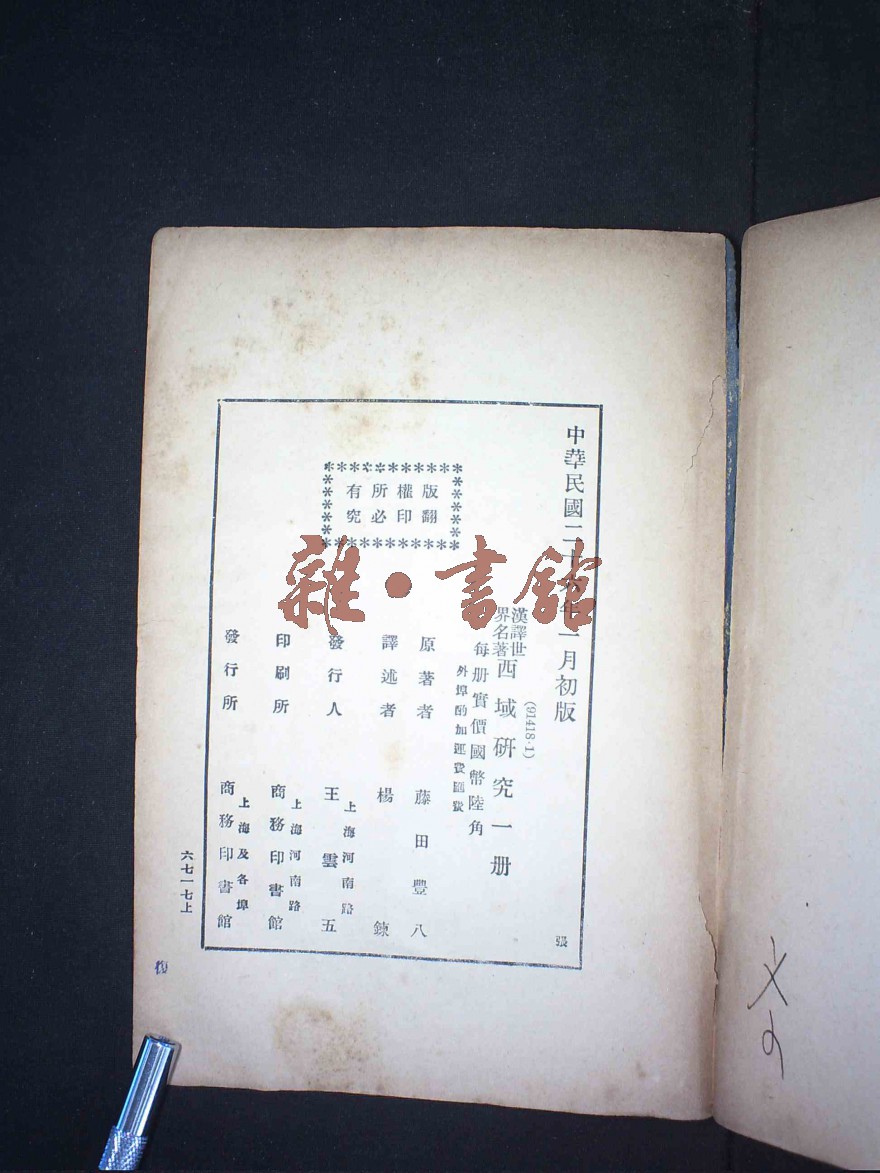 中華民國二十六年一月初版
(91418·1)
漢譯世界名著 西域研究一册
每册實價國幣陸角
外埠酌加運費匯費
原著者 藤田豐八
譯述者 楊鍊
發行人 王雲五
上海河南路
印刷所 商務印書館
上海河南路
發行所 商務印書館
上海及各埠
版權所有
翻印必究
張
六七一七上
雜·書館